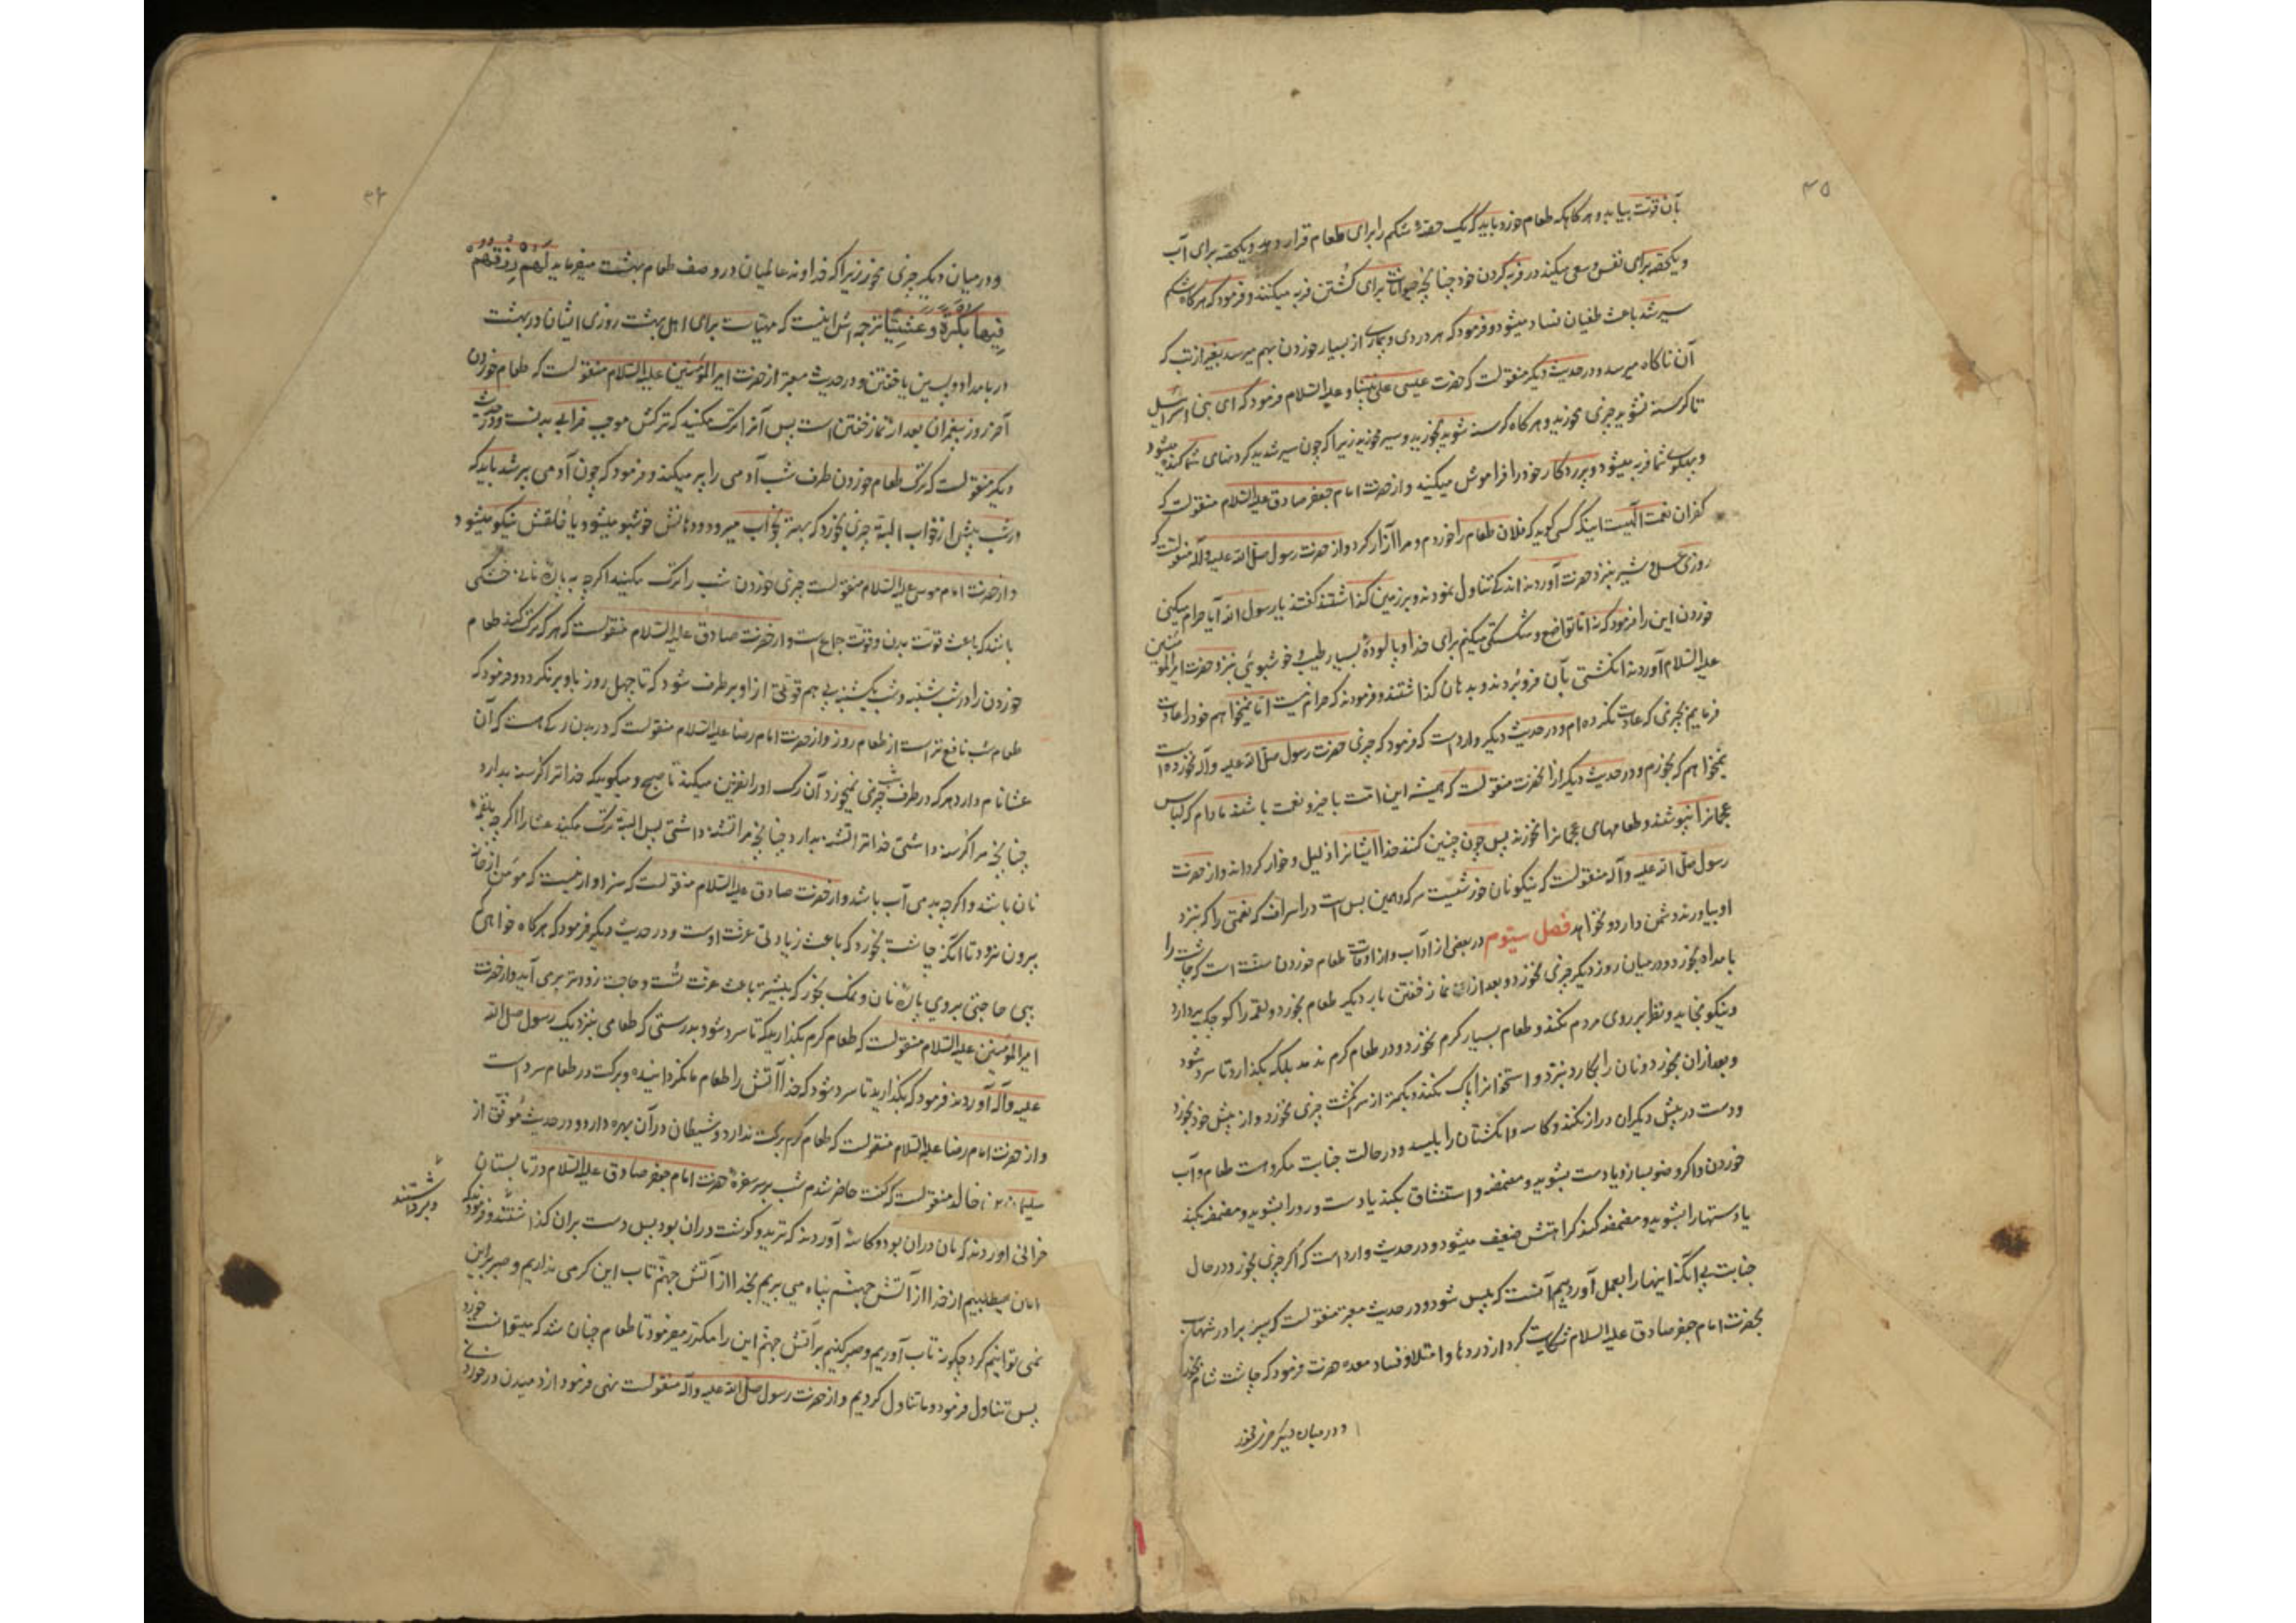 ۴۵
بآن قوت بیابد و هرگاه که طعام خورد باید که یک حصهٔ شکم را برای طعام قرار دهد و یکحصه برای آب
و یکحصه برای نفس و سعی نکند در فربه کردن خود چنانچه حیوانات برای کشتن فربه میکنند و فرمود که هرگاه شکم
سیر شد باعث طغیان فساد میشود و فرمود که هر دردی و بیماری از بسیار خوردن بهم میرسد بغیر از تب که
آن ناگاه میرسد و در حدیث دیگر منقولست که حضرت عیسی علی نبینا و علیه السلام فرمود که ای بنی اسرائیل
تا گرسنه نشوید چیزی مخورید و هرگاه گرسنه شوید بخورید و سیر مخورید زیرا که چون سیر شدید گردنهای شما کنده میشود
و پهلوی شما فربه میشود و پروردگار خود را فراموش میکنید و از حضرت امام جعفر صادق علیه السلام منقولست که
کفران نعمت الٓهیست اینکه کسی گوید که فلان طعام را خوردم و مرا آزار کرد و از حضرت رسول صلی الله علیه و آله منقولست که
روزی عسل و شیر بنزد حضرت آوردند اندکی تناول نمودند و بر زمین گذاشتند گفتند یا رسول الله آیا حرام میکنی
خوردن این را فرمود که نه اما تواضع و شکستگی میکنم برای خدا و پالودهٔ بسیار طیب و خوشبوئی بنزد حضرت امیرالمؤمنین
علیه السلام آوردند انگشتی بآن فرو بردند و بدهان گذاشتند و فرمودند که حرام نیست اما نمیخواهم خود را عادت
فرمایم بچیزی که عادت نکرده ام و در حدیث دیگر وارد است که فرمود که چیزی حضرت رسول صلی الله علیه و آله نخورده است
نمیخواهم که بخورم و در حدیث دیگر از آنحضرت منقولست که همیشه این امت با خیر و نعمت باشند مادام که لباس
عجمانرا نپوشند و طعامهای عجمانرا نخورند پس چون چنین کنند خدا ایشانرا ذلیل و خوار گرداند و از حضرت
رسول صلی الله علیه و آله منقولست که نیکو نان خورشیست سرکه و همین بس است در اسراف که نعمتی را که بنزد
او بیاورند دشمن دارد و نخواهد فصل سیوم در بعضی از آداب و از اوقات طعام خوردن سنت است که چاشت را
بامداد بخورد و در میان روز دیگر چیزی نخورد و بعد از نماز خفتن بار دیگر طعام بخورد و لقمه را کوچک بردارد
و نیکو بخاید و نظر بر روی مردم نکند و طعام بسیار گرم نخورد و در طعام گرم ندمد بلکه بگذارد تا سرد شود
و بعد از آن بخورد و نان را بکارد نبرد و استخوانرا پاک نکند و بکمتر از سه انگشت چیزی نخورد و از پیش خود بخورد
و دست در پیش دیگران دراز نکند و کاسه و انگشتان را بلیسد و در حالت جنابت مکروهست طعام و آب
خوردن و اگر وضو بسازد یا دست بشوید و مضمضه و استنشاق بکند یا دست و رو را بشوید و مضمضه بکند
یا دستها را بشوید و مضمضه کند کراهتش ضعیف میشود و در حدیث وارد است که اگر چیزی بخورد در حال
جنابت بی آنکه اینها را بعمل آورد بیم آنست که پیس شود و در حدیث معتبر منقولست که پسر برادر شهاب
بحضرت امام جعفر صادق علیه السلام شکایت کرد از دردها و امتلا و فساد معده حضرت فرمود که چاشت و شام بخور
و در میان دیگر چیزی مخور
و در میان دیگر چیزی مخور زیرا که خداوند عالمیان در وصف طعام بهشت میفرماید لهم رزقهم
فیها بکرة و عشیا ترجمه اش اینست که مهیاست برای اهل بهشت روزی ایشان در بهشت
در بامداد و پسین یا خفتن و در حدیث معتبر از حضرت امیرالمؤمنین علیه السلام منقولست که طعام خوردن
آخر روز پیغمبران بعد از نماز خفتن است پس آنرا ترک مکنید که ترکش موجب خرابی بدنست و در حدیث
دیگر منقولست که ترک طعام خوردن طرف شب آدمی را پیر میکند و فرمود که چون آدمی پیر شد باید که
در شب پیش از خواب البته چیزی بخورد که بهتر بخواب میرود و دهانش خوشبو میشود یا خلقش نیکو میشود
و از حضرت امام موسی علیه السلام منقولست چیزی خوردن شب را ترک مکنید اگرچه به پارهٔ نانی خشکی
باشد که باعث قوت بدن و قوت جماع است و از حضرت صادق علیه السلام منقولست که هر که ترک کند طعام
خوردن را در شب شنبه و شب یکشنبه پی هم قوتی از او برطرف شود که تا چهل روز باو برنگردد و فرمود که
طعام شب نافع تر است از طعام روز و از حضرت امام رضا علیه السلام منقولست که در بدن رگی هست که آن
عشا نام دارد هر که در طرف شب چیزی نمیخورد آن رگ او را نفرین میکند تا صبح و میگوید که خدا ترا گرسنه بدارد
چنانچه مرا گرسنه داشتی خدا ترا تشنه بدارد چنانچه مرا تشنه داشتی پس البته ترک مکنید عشا را اگرچه بلقمهٔ
نان باشد و اگرچه بدمی آب باشد و از حضرت صادق علیه السلام منقولست که سزاوار نیست که مؤمن از خانه
بیرون نرود تا آنکه چاشت بخورد که باعث زیادتی عزت اوست و در حدیث دیگر فرمود که هرگاه خواهی که
پی حاجتی بروی پارهٔ نان و نمک بخور که بیشتر باعث عزت تست و حاجت زودتر برمی آید و از حضرت
امیرالمؤمنین علیه السلام منقولست که طعام گرم بگذارید که تا سرد شود بدرستی که طعامی بنزدیک رسول صلی الله
علیه و آله آوردند فرمود که بگذارید تا سرد شود که خدا آتش را طعام ما نگردانیده و برکت در طعام سرد است
و از حضرت امام رضا علیه السلام منقولست که طعام گرم برکت ندارد و شیطان در آن بهره دارد و در حدیث موثق از
خالد منقولست که گفت حاضر شدم شب بر سر سفرهٔ حضرت امام جعفر صادق علیه السلام در تابستان
خوانی آوردند که نان در آن بود و کاسهٔ آوردند که ترید و گوشت در آن بود پس دست بر آن گذاشتند و فرمودند که
و برداشتند
امان میطلبیم از خدا از آتش جهنم پناه می بریم بخدا از آتش جهنم تاب این گرمی نداریم و صبر بر این
نمی توانیم کرد چگونه تاب آوریم و صبر کنیم بر آتش جهنم این را مکرر میفرمود تا طعام چنان شد که میتوانست خورد
پس تناول فرمود و ما تناول کردیم و از حضرت رسول صلی الله علیه و آله منقولست نهی فرمود از دمیدن در خوردنی